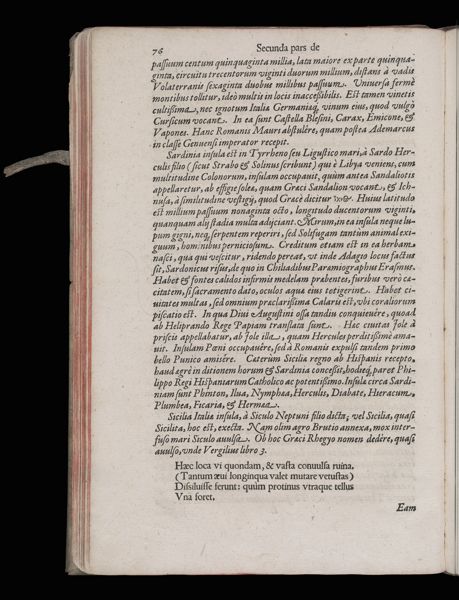 76 Secunda pars de
passuum centum quinquaginta millia, lata maiore ex parte quinqua-
ginta, circuitu trecentorum viginti duorum millium, distans à vadis
Volaterranis sexaginta duobus millibus passuum. Universa fermè
montibus tollitur, ideò multis in locis inaccessibilis. Est tamen vinetis
cultissima, nec ignotum Italis Germanisq́, vinum eius, quod vulgò
Cursicum vocant. In ea sunt Castella Blesini, Carax, Emicone, &
Vapones. Hanc Romanis Mauri abstulêre, quam postea Ademarcus
in classe Genuensi imperator recepit.
Sardinia insula est in Tyrrheno seu Ligustico mari, à Sardo Her-
culis filio (sicut Strabo & Solinus scribunt) qui è Libya veniens, cum
multitudine Colonorum, insulam occupauit, quùm antea Sandaliotis
appellaretur, ab effigie soleæ, quam Græci Sandalion vocant, & Ich-
nusa, à similitudine vestigij, quod Græcè dicitur ἴχν@. Huius latitudo
est millium passuum nonaginta octo, longitudo ducentorum viginti,
quanquam alij stadia multa adijciant. Mirum, in ea insula neque lu-
pum gigni, neq́, serpentem reperiri, sed Solifugam tantùm animal exi-
guum, hominibus perniciosum. Creditum etiam est in ea herbam
nasci, qua qui vescitur, ridendo pereat, vt inde Adagio locus factus
sit, Sardonicus risus, de quo in Chiliadibus Parœmiographus Erasmus.
Habet & fontes calidos infirmis medelam præbentes, furibus verò cæ-
citatem, si sacramento dato, oculos aqua eius tetigerint. Habet ci-
uitates multas, sed omnium præclarissima Calaris est, vbi coraliorum
piscatio est. In qua Diui Augustini ossa tandiu conquieuêre, quoad
ab Heliprando Rege Papiam translata sunt. Hæc ciuitas Iole à
priscis appellabatur, ab Iole illa, quam Hercules perditissimè ama-
uit. Insulam Pœni occupauêre, sed à Romanis expulsi tandem primo
bello Punico amisêre. Cæterùm Sicilia regno ab Hispanis recepto,
haud ægrè in ditionem horum & Sardinia concessit, hodieq́, paret Phi-
lippo Regi Hispaniarum Catholico ac potentissimo. Insulæ circa Sardi-
niam sunt Phinton, Ilua, Nymphæa, Herculis, Diabate, Hieracum,
Plumbea, Ficaria, & Hermæa.
Sicilia Italiæ insula, à Siculo Neptuni filio dicta; vel Sicilia, quasi
Sicilita, hoc est, execta. Nam olim agro Brutio annexa, mox inter-
fuso mari Siculo auulsa. Ob hoc Græci Rhegyo nomen dedêre, quasi
auulso, vnde Vergilius libro 3.
Hæc loca vi quondam, & vasta conuulsa ruina.
(Tantum æui longinqua valet mutare vetustas)
Dissiluisse ferunt: quùm protinus vtraque tellus
Vna foret,
Eam